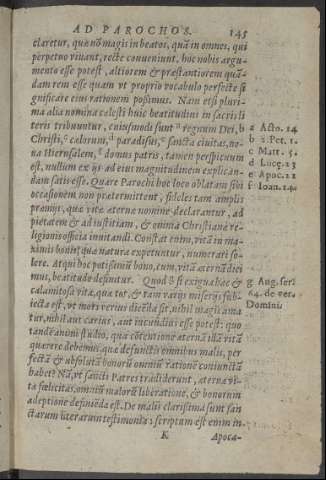 AD PAROCHOS. 145
claretur, quæ nõ magis in beatos, quã in omnes, qui
perpetuo viuant, recte conueniunt, hoc nobis argu-
mento esse potest, altiorem & præstantiorem quã-
dam rem esse quam vt proprio vocabulo perfecte si
gnificare eius rationem possimus. Nam etsi pluri-
ma alia nomina cælesti huic beatitudini in sacris li
teris tribuuntur, cuiusmodi sunt a regnum Dei, b a Acto. 14
Christi, c cælorum, d paradisus, e sancta ciuitas, no- b 2 Pet. 1.
ua Hierusalem, f domus patris, tamen perspicuum c Matt. 5.
est, nullum ex ijs ad eius magnitudinem explican- d Luce. 23
dam satis esse. Quare Parochi hoc loco oblatam sibi e Apoc. 21
occasionem non prætermittent, fideles tam amplis f Ioan. 14.
præmijs, quæ vitæ æternæ nomine declarantur, ad
pietatem & ad iustitiam, & omnia Christianæ re-
ligionis officia inuitandi. Constat enim, vitã in ma-
ximis bonis, quæ natura expetuntur, numerari so-
lere. Atqui hoc potissimũ bono, cum vitã æternã dici
mus, beatitudo definitur. Quod si exigua hac & g Aug. ser.
calamitosa vita, quæ tot, & tam varijs miserijs sub- 64. de ver.
iecta est, vt mors verius dicẽda sit, nihil magis ama Domini
tur, nihil aut carius, aut iucundius esse potest: quo
tandẽ animi studio, qua cõtentione æternã illã vitã
quærere debemus, quæ defunctis omnibus malis, per
fectã & absolutã bonorũ omniũ rationẽ coniunctã
habet? Nã, vt sancti Patres tradiderunt, æternæ vi-
tæ fœlicitas, omniũ malorũ liberatione, & bonorum
adeptione definiẽda est. De malis clarissima sunt san
ctarum literarum testimonia: scriptum est enim in
K Apoca-